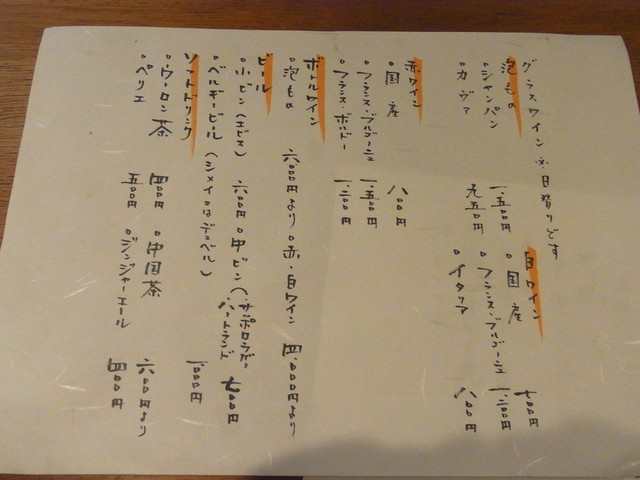 グラスワイン ※日替りです
泡もの
。シャンパン 一、五〇〇円
。カヴァ 九五〇円
白ワイン
。国産 七〇〇円
。フランス・ブルゴーニュ 一、一〇〇円
。イタリア 八〇〇円
赤ワイン
。国産 八〇〇円
。フランス・ブルゴーニュ 一、五〇〇円
。フランス・ボルドー 一、一〇〇円
ボトルワイン
。泡もの 六、〇〇〇円より
。赤・白ワイン 四、〇〇〇円より
ビール
。小ビン(エビス) 六〇〇円
。中ビン(サッポロラガー ハートランド) 七〇〇円
。ベルギービール(シメイ
一、〇〇〇円
ソフトドリンク
。ウーロン茶 四〇〇円
。中国茶 六〇〇円より
。ペリエ 五〇〇円
。ジンジャーエール 四〇〇円